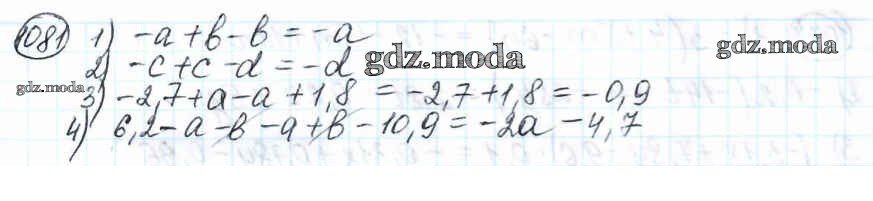 1081 1) -a + b - b = -a
gdz.moda
2) -c + c - d = -d gdz.moda
gdz.moda 3) -2,7 + a - a + 1,8 = -2,7 + 1,8 = -0,9
4) 6,2 - a - b - a + b - 10,9 = -2a - 4,7